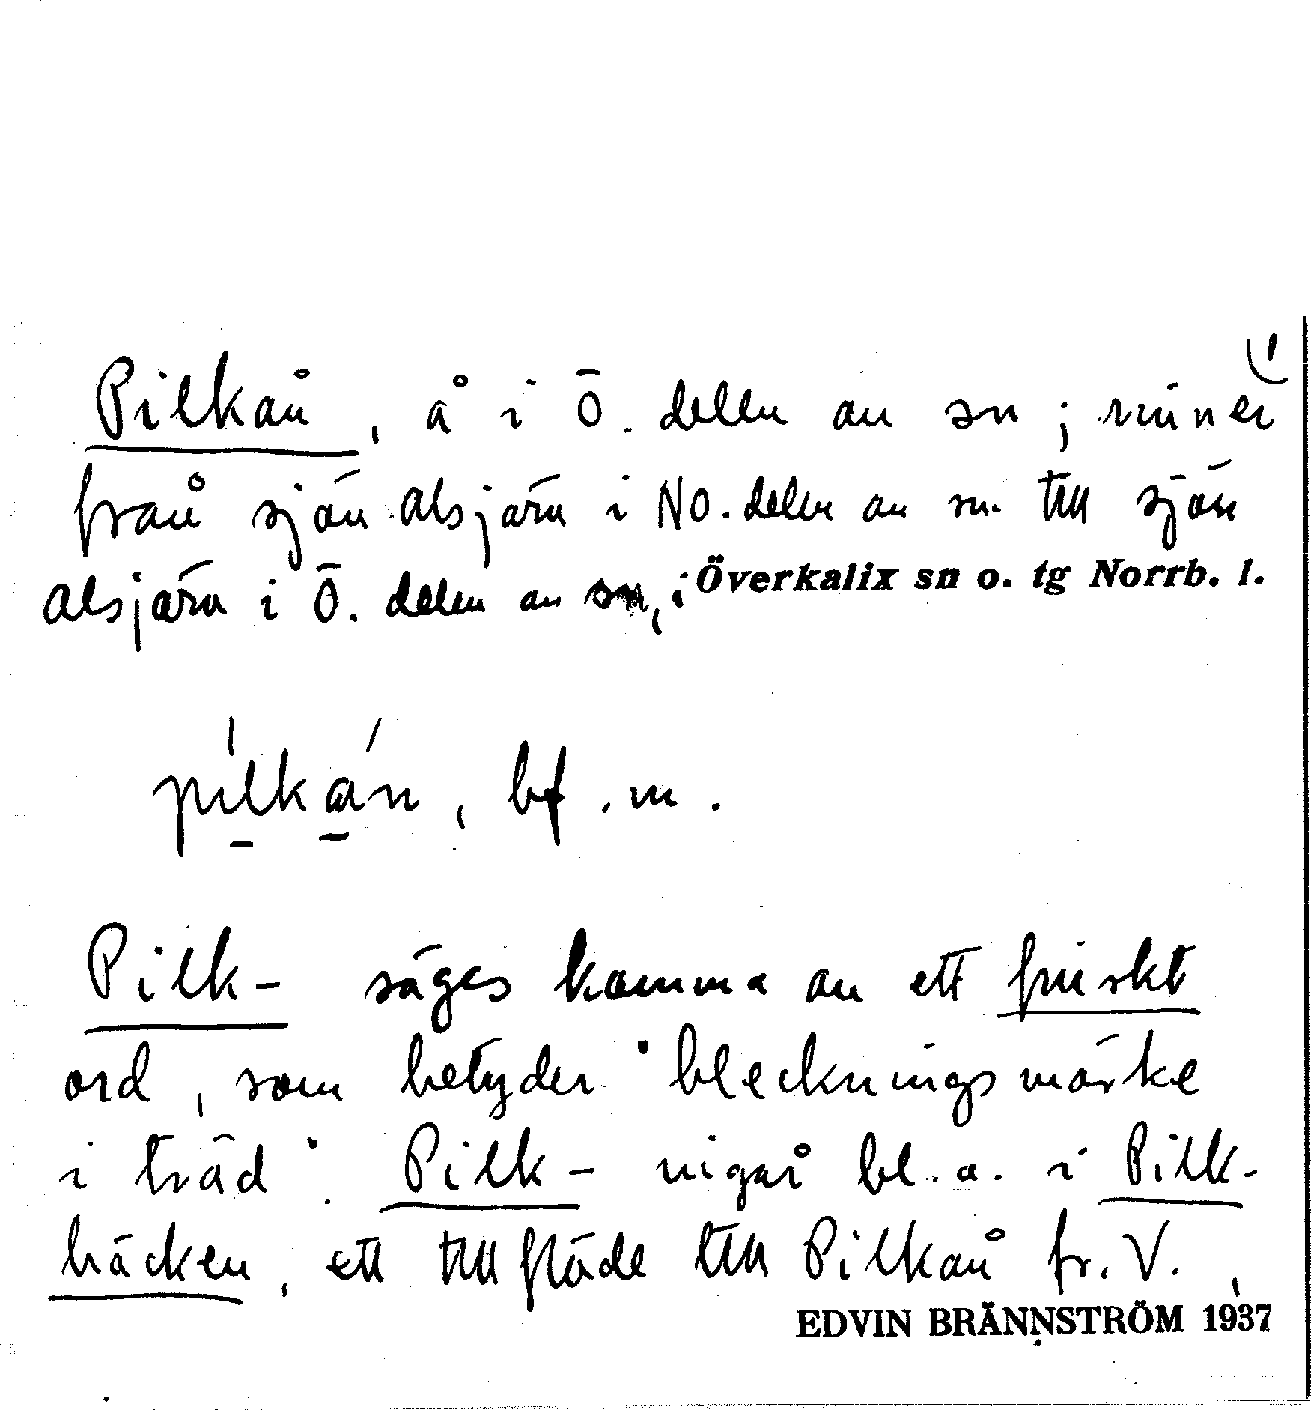 Pilkån, å i Ö. delen av sn; rinner
från sjön Alsjärv i NO. delen av sn. till sjön
Alsjärv i Ö. delen av sn, i Överkalix sn o. tg Norrb. l.
pìlkán, bf. m.
Pilk- säges komma av ett finskt
ord, som betyder 'bleckningsmärke
i träd'. Pilk- ingår bl. a. i Pilk-
bäcken, ett tillflöde till Pilkån fr. V.
EDVIN BRÄNNSTRÖM 1937